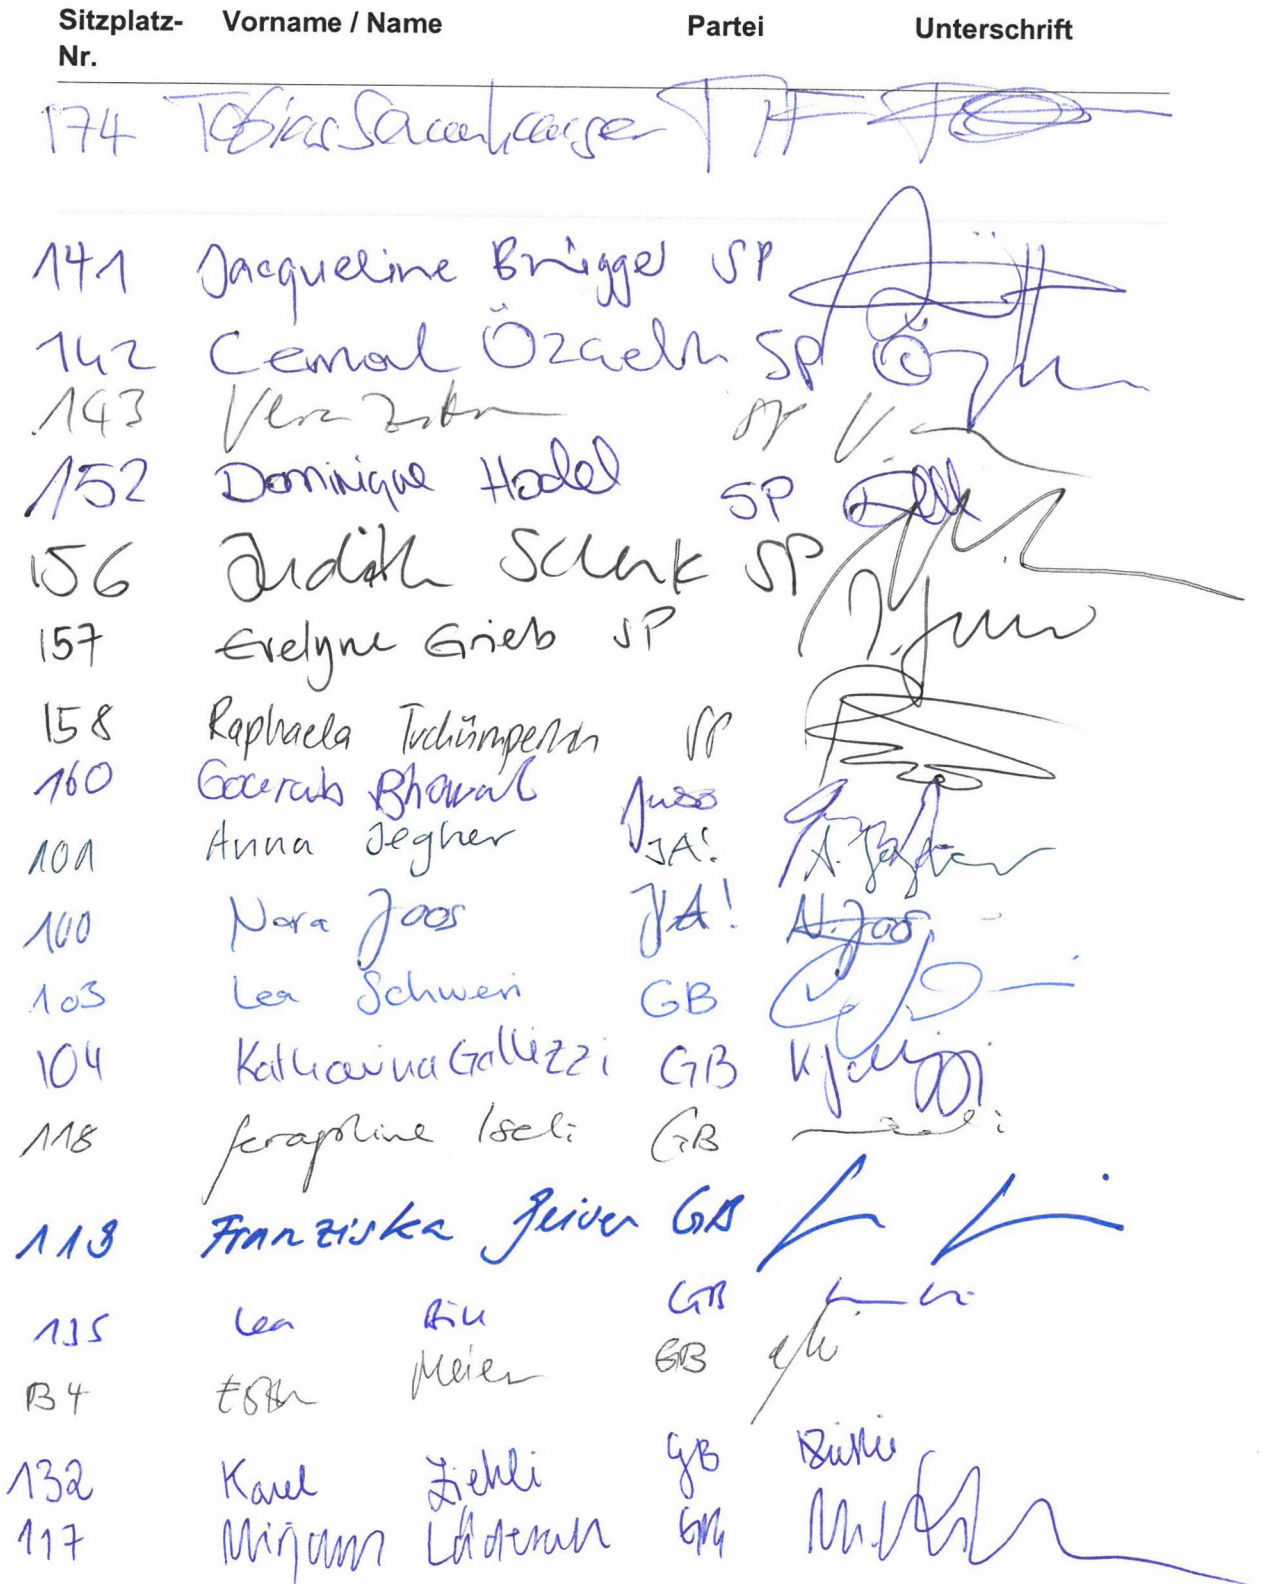 Sitzplatz- Vorname / Name Partei Unterschrift
Nr.
174 Tobias
141 Jacqueline Brügger SP
142 Cemal Özçelik SP
143 Vera SP
152 Dominique Hodel SP
156 Judith Schenk SP
157 Evelyne Grieb SP
158 Raphaela Tschümperlin SP
160 Gourab Bhowal Juso
101 Anna Jegher JA!
100 Nora Joos JA! N. Joos
103 Lea Schweri GB
104 Katharina Gallizzi GB
118 Seraphine Iseli GB
113 Franziska Geiser GB
135 Lea Bill GB
Meier GB
132 Karel Ziehli GB
117 Mirjam Läderach GB